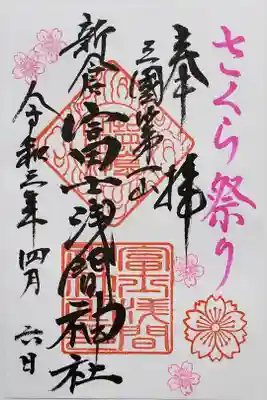 さくら祭り
奉拝
三國第一山
新倉富士浅間神社
令和三年四月六日
冨士浅間